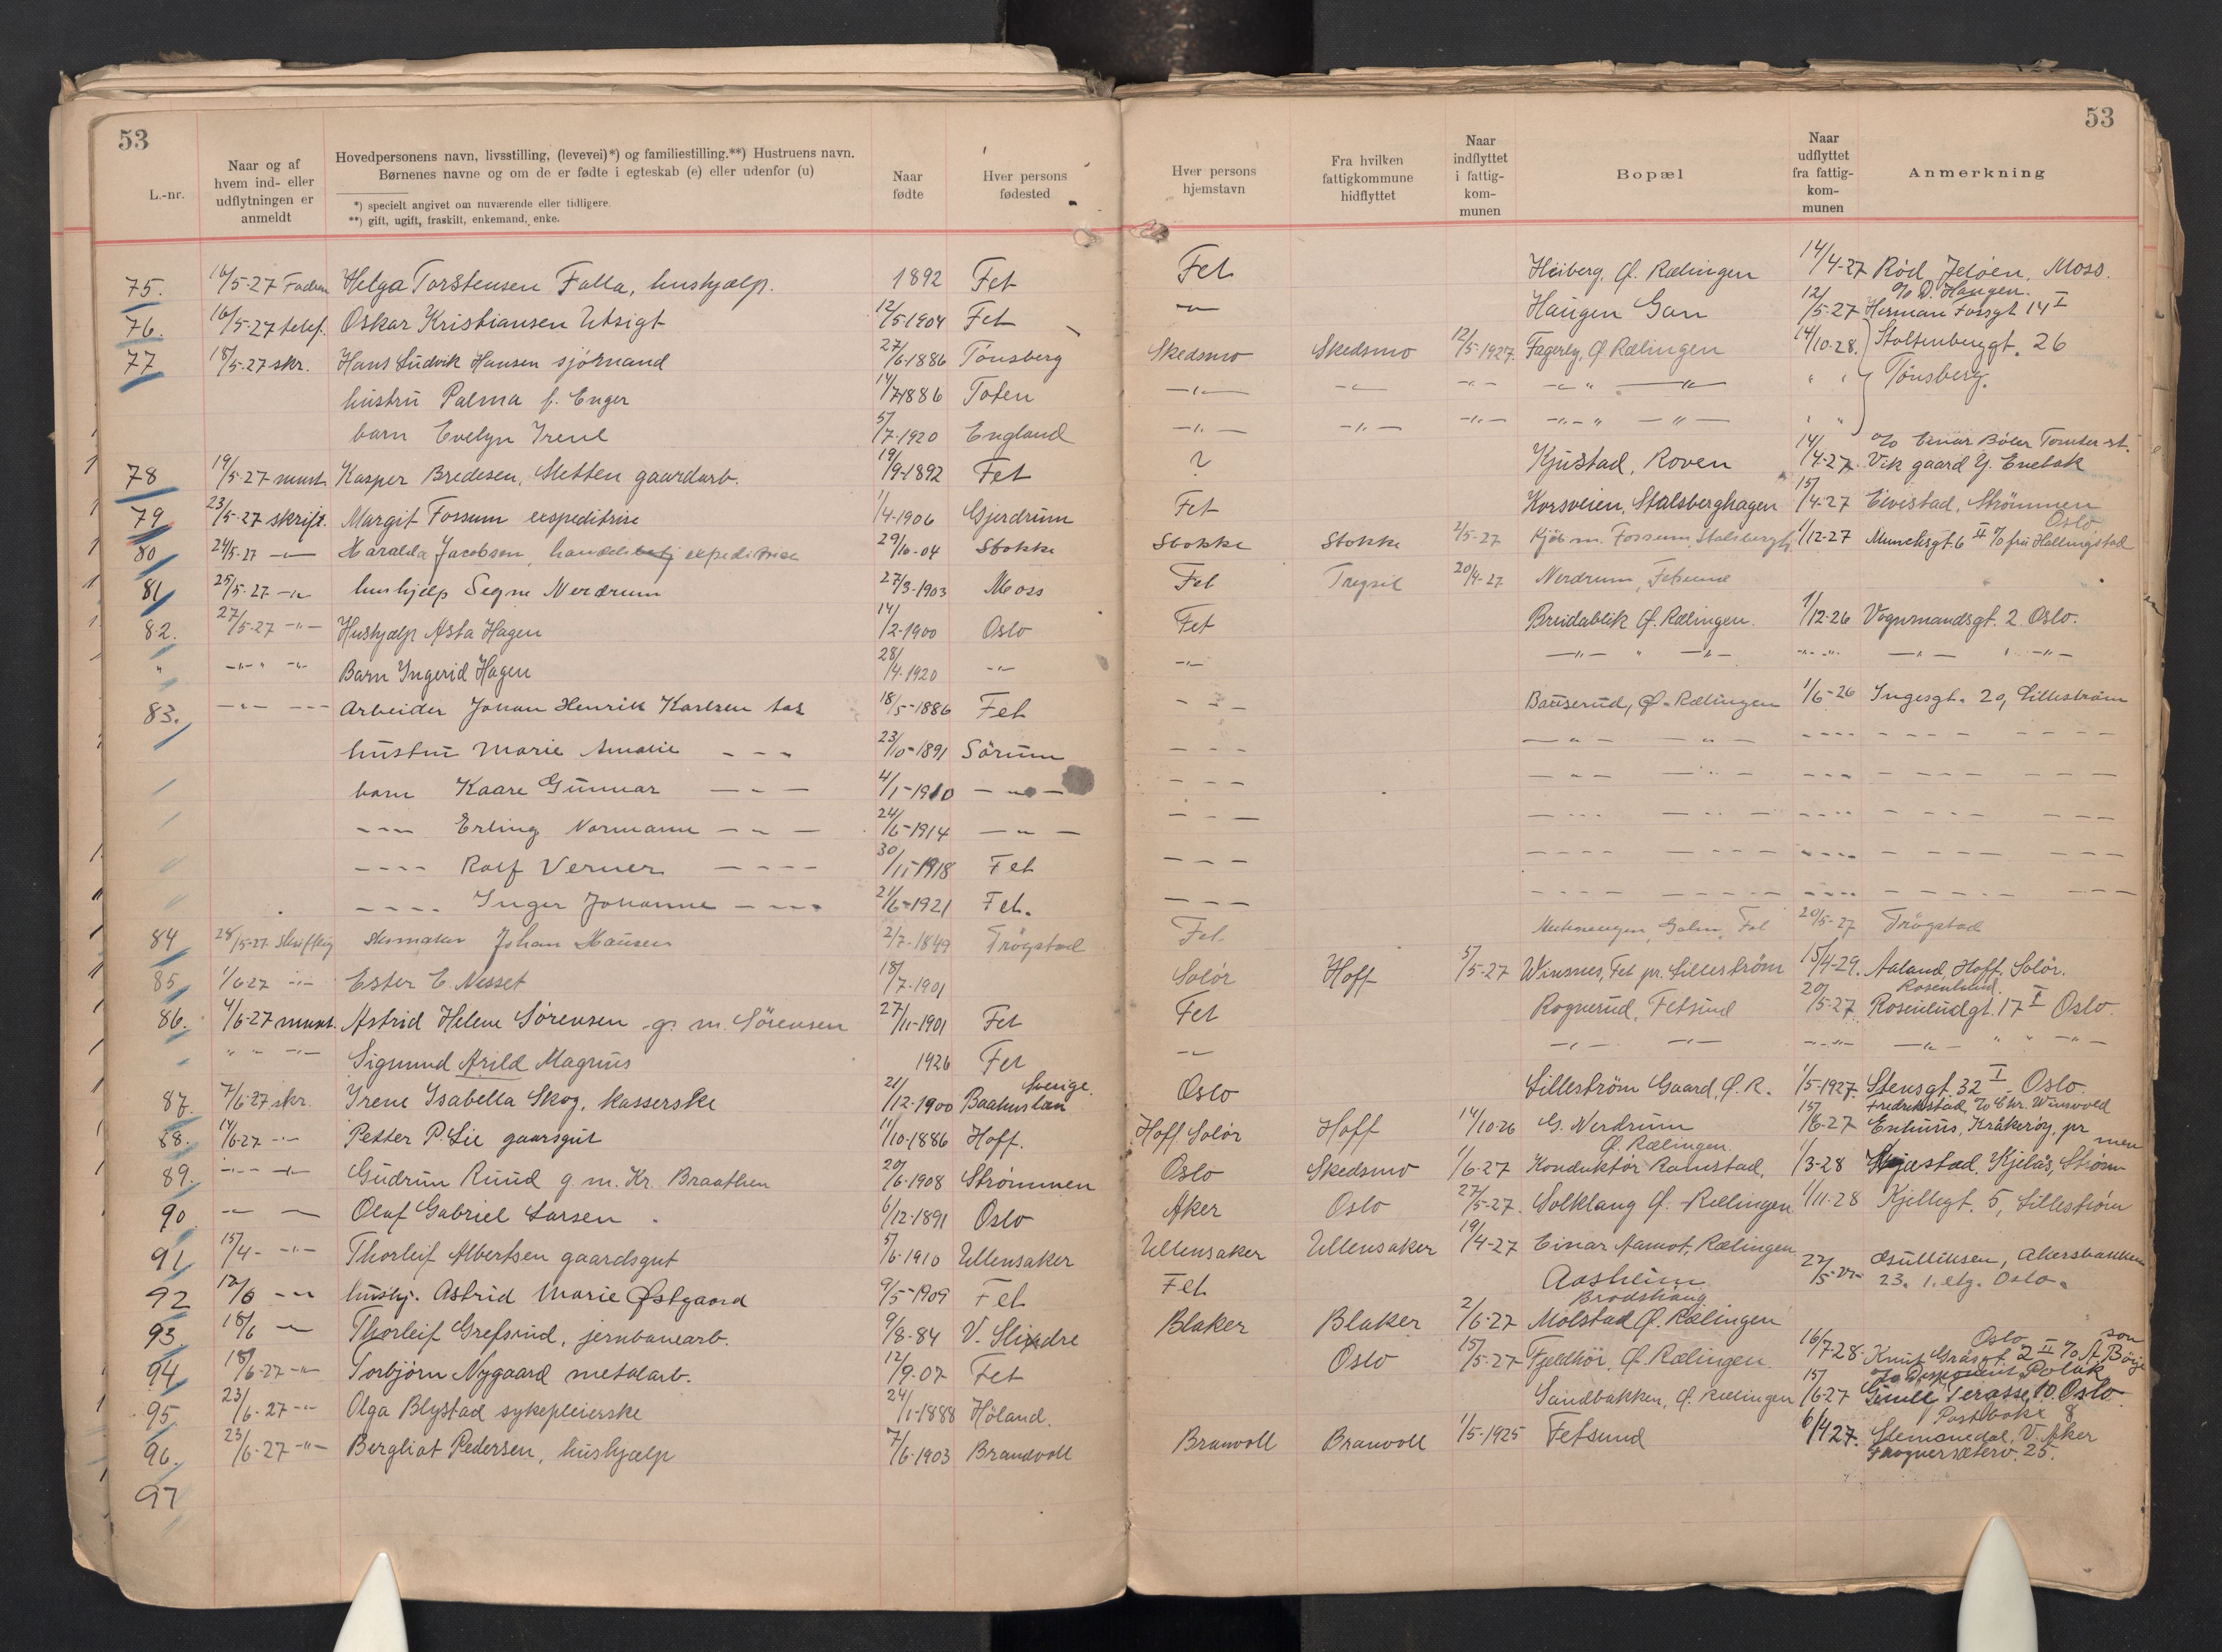 53
53
L.-nr.
Naar og af hvem ind- eller udflytningen er anmeldt
Hovedpersonens navn, livsstilling, (levevei)*) og familiestilling.**) Hustruens navn.
Børnenes navne og om de er fødte i egteskab (e) eller udenfor (u)
*) specielt angivet om nuværende eller tidligere.
**) gift, ugift, fraskilt, enkemand, enke.
Naar fødte
Hver persons fødested
Hver persons hjemstavn
Fra hvilken fattigkommune hidflyttet
Naar indflyttet i fattig-kom-munen
Bopæl
Naar udflyttet fra fattig-kom-munen
Anmerkning
75. 16/5-27 Helga Torstensen Falla, hushjælp. 1892 Fet Fet Heiberg, Ø. Rælingen 14/4-27 Rød, Jeløen, Moss.
℅ D. Haugen.
76. 16/5-27 telef. Oskar Kristiansen Utsigt 12/5-1904 Fet -"- Haugen Gan 12/5-27 Herman Fossgt 14 I
77 18/5-27 skr. Hans Ludvik Hansen sjømand 27/6-1886 Tønsberg Skedsmo Skedsmo 12/5-1927. Fagerly, Ø Rælingen 14/10-28. Stoltenberggt. 26
hustru Palma f. Enger 14/7-1886 Toten -"- -"- -"- -"- " -"- " " Tønsberg.
barn Evelyn Irene 5/7-1920 England -"- -"- -"- -"- " -"- " "
℅ Einar Bøler Tomter st.
78 19/5-27 munt. Kasper Bredesen, Sletten gaardarb. 19/9-1892 Fet ? Kjustad, Roven 14/4-27. Vik gaard Y. Enebak
79 23/5-27 skrift. Margit Fossum expeditrise 1/4-1906 Gjerdrum Fet Korsveien, Stalsberghagen 15/4-27 Eivistad, Strømmen
Oslo
80 24/5-27 -"- Haralda Jacobsen, expeditrise 29/10-04 Stokke Stokke Stokke 2/5-27 Kjøb m. Fossum, Stalsbergh. 1/12-27 Muncksgt. 6 II ℅ fru Hallingstad
81 25/5-27 -"- hushjelp Segne Nerdrum 27/3-1903 Moss Fet Trysil 20/4-27 Nerdrum, Fetsund
82. 27/5-27 -"- Hushjælp Asta Hagen 14/2-1900 Oslo Fet Breidablik Ø. Rælingen. 1/12-26 Vognmandsgt. 2. Oslo.
" -"- " -"- Barn Ingerid Hagen 28/4-1920 -"- -"- -"- " -"- -"- -"- -"- " -"-
83. -"- --- Arbeider Johan Henrik Karlsen 18/5-1886 Fet - " - Bauserud, Ø. Rælingen 1/6-26 Ingesgt. 20, Lillestrøm
hustru Marie Amalie - - - 23/10-1891 Sørum - - - - " - - " - - - - - - - - - - - -
barn Kaare Gunnar - " - 4/1-1910 - " - - - - - " - - " - - - - - - - - - - -
- - - Erling Normann - " - 24/6-1914 - " - - - - - - - - - - - - - - - - - - - - - -
- - - - Rolf Verner - - - - 30/11-1918 Fet - - - - - - - - - - - - - - - - - - - - - -
- - - - Inger Johanne - - - - 21/6-1921 Fet. - - - - - - - - - - - - - - - - - - - - - -
84 28/5-27 skriftlig skomaker Johan Hansen 2/7-1849 Trøgstad Fet Galm, Fet 20/5-27 Trøgstad
85 1/6 27 -"- Ester E. Nesset 18/7-1901 Solør Hoff 5/5-27 Winsnes, Fet pr. Lillestrøm 15/4-29. Aaland, Hoff, Solør.
Rosenlund.
86. 4/6-27 munt. Astrid Helene Sørensen g. m. Sørensen 27/11-1901 Fet Fet Rognerud, Fetsund 20/5-27. Rosenludgt. 17 I Oslo.
" " -"- Sigmund Arild Magnus 1926 Fet -"- -"- -"- -"- -"- " " -"-
Sverige
87. 7/6-27 skr. Irene Isabella Skog, kasserske 21/12-1900 Baahuslæn Oslo Lillestrøm Gaard, Ø. R. 1/5-1927. Stensgt. 32 I Oslo.
Fredrikstad, ℅ Chr. Winsvold
88. 14/6-27 -"- Petter P. Lie gaarsgut 11/10-1886 Hoff. Hoff Solør Hoff 14/10-26 G. Nerdrum 15/6-27 Enhuus, Kråkerøy, pr
Ø. Rælingen men
89. -"- -"- Gudrun Ruud g. m. Kr. Braathen 20/6-1908 Strømmen Oslo Skedsmo 1/6-27 Konduktør Ramstad, 1/3-28 Kjelås, Strøm-
90 -"- -"- Olaf Gabriel Larsen 6/12-1891 Oslo Aker Oslo 27/5-27. Solklang Ø. Rælingen 1/11-28 Kjellegt. 5, Lillestrøm
91 15/4- -"- Thorleif Albertsen gaardsgut 5/6-1910 Ullensaker Ullensaker Ullensaker 19/4-27 Einar Aamot, Rælingen
92 12/6 -"- hushj. Astrid Marie Østgaard 9/5-1909 Fet Fet Aasheim 22/5-27 Akersbakken
23. 1. etg. Oslo.
Brodshaug
93 18/6 -"- Thorleif Grefsrud, jernbanearb. 9/8-84 V. Slidre Blaker Blaker 2/6-27 Molstad Ø. Rælingen
Oslo son
94 18/6-27 -"- Torbjørn Nygaard metalarb. 12/9.07 Fet Oslo 15/5-27 Fjeldhøi, Ø. Rælingen. 16/7-28. Knut Gråsgt. 2 II ℅ A. Børje
℅ Disponent Polak
95 23/6-27 -"- Olga Blystad sykepleierske 24/1-1888 Høland. Sandbakken, Ø. Rælingen 15/6-27 Terasse, 10. Oslo
Postboks 8
96. 23/6-27 -"- Bergliot Pedersen, hushjælp 7/6-1903 Brandvoll Branvoll Branvoll 1/5-1925 Fetsund 6/4 27. Slemdal, V. Aker
Frognersæterv. 25.
97